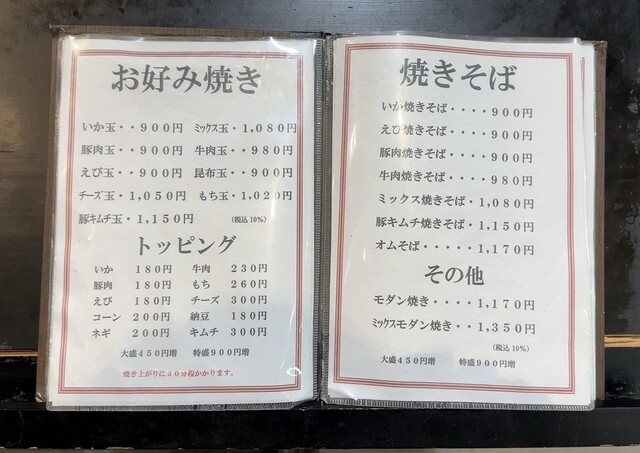 お好み焼き
いか玉・・９００円 ミックス玉・１,０８０円
豚肉玉・・９００円 牛肉玉・・９８０円
えび玉・・９００円 昆布玉・・９００円
チーズ玉・１,０５０円 もち玉・１,０２０円
豚キムチ玉・１,１５０円 (税込10%)
トッピング
いか １８０円 牛肉 ２３０円
豚肉 １８０円 もち ２６０円
えび １８０円 チーズ ３００円
コーン ２００円 納豆 １８０円
ネギ ２００円 キムチ ３００円
大盛４５０円増 特盛９００円増
焼き上がりに３０分程かかります。
焼きそば
いか焼きそば・・・・９００円
えび焼きそば・・・・９００円
豚肉焼きそば・・・・９００円
牛肉焼きそば・・・・９８０円
ミックス焼きそば・１,０８０円
豚キムチ焼きそば・１,１５０円
オムそば・・・・・１,１７０円
その他
モダン焼き・・・・１,１７０円
ミックスモダン焼き・・１,３５０円
(税込10%)
大盛４５０円増 特盛９００円増